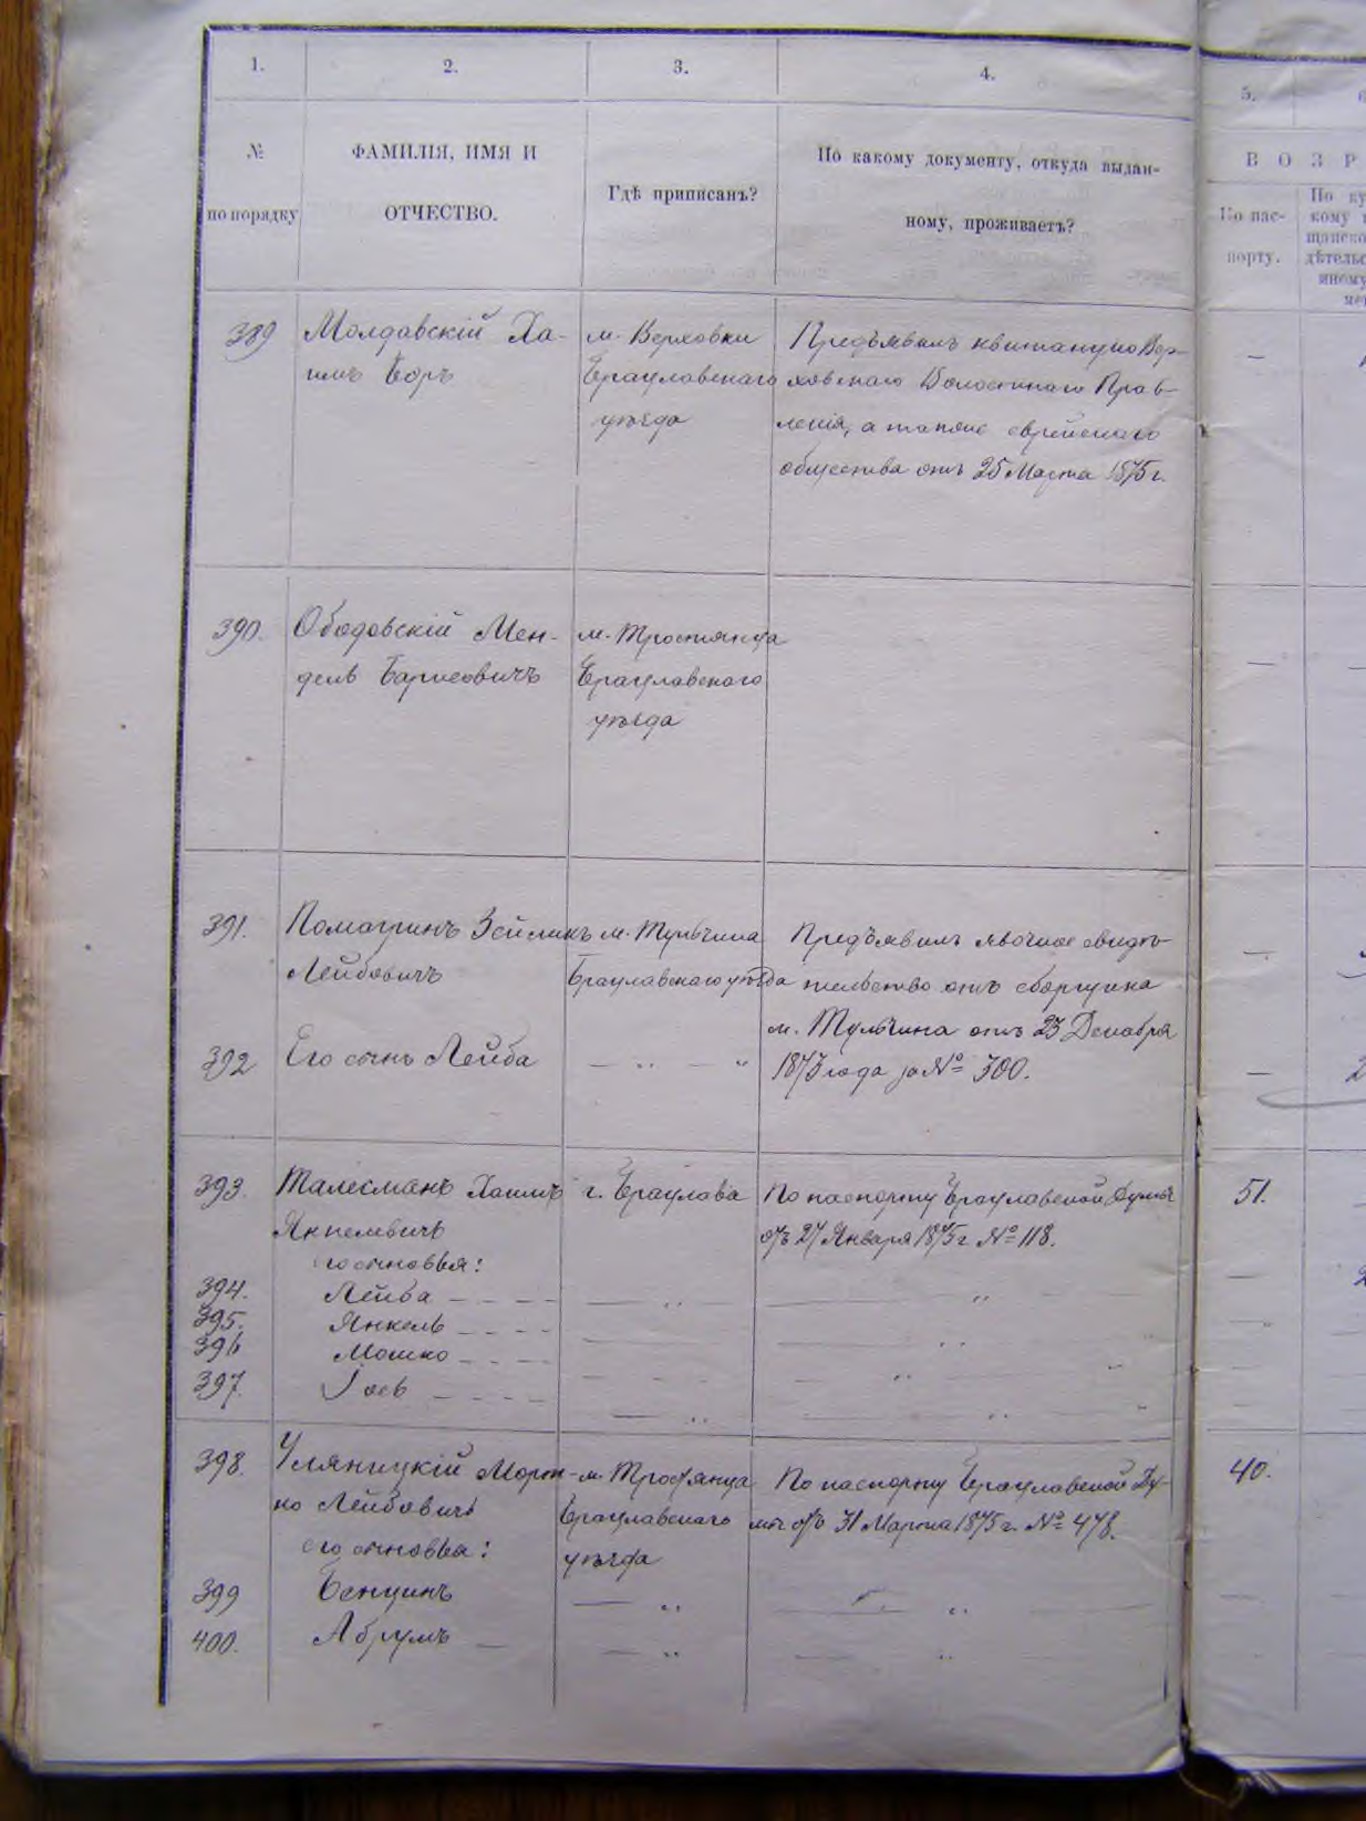 1. 2. 3. 4.
5.
№
по порядку
ФАМИЛІЯ, ИМЯ И
ОТЧЕСТВО.
Гдѣ приписанъ?
По какому документу, откуда выдан-
ному, проживаетъ?
ВОЗР
По пас-
порту.
389 Молдавскій Ха-
имъ Беръ
м. Верховки
Брацлавскаго
уѣзда
Предъявилъ квитанцію Вер-
ховскаго Волостнаго Прав-
ленія, а также еврейскаго
общества отъ 25 Марта 1875 г.
—
390. Ободовскій Мен-
дель
м. Тростянца
Брацлавскаго
уѣзда
—
391. Помагринъ Зейликъ
Лейбовичъ
м. Тульчина
Брацлавскаго уѣзда
Предъявилъ явочное свидѣ-
тельство отъ сборщика
м. Тульчина отъ 23 Декабря
1873 года за № 300.
—
392 Его сынъ Лейба — „ — „
—
393. Талесманъ Хаимъ
Янкелевичъ
г. Брацлава
По паспорту Брацлавской Думы
отъ 27 Января 1875 г. № 118.
51.
его сыновья:
394. Лейба — — — —
395. Янкель — — — —
396 Мошко — — — —
397. Іось — — — —
398. Уляницкій Морт-
ко Лейбовичъ
м. Тростянца
Брацлавскаго
уѣзда
По паспорту Брацлавской Ду-
мы отъ 31 Марта 1875 г. № 478.
40.
его сыновья:
399 Бенционъ — „
400. Абрумъ — — „